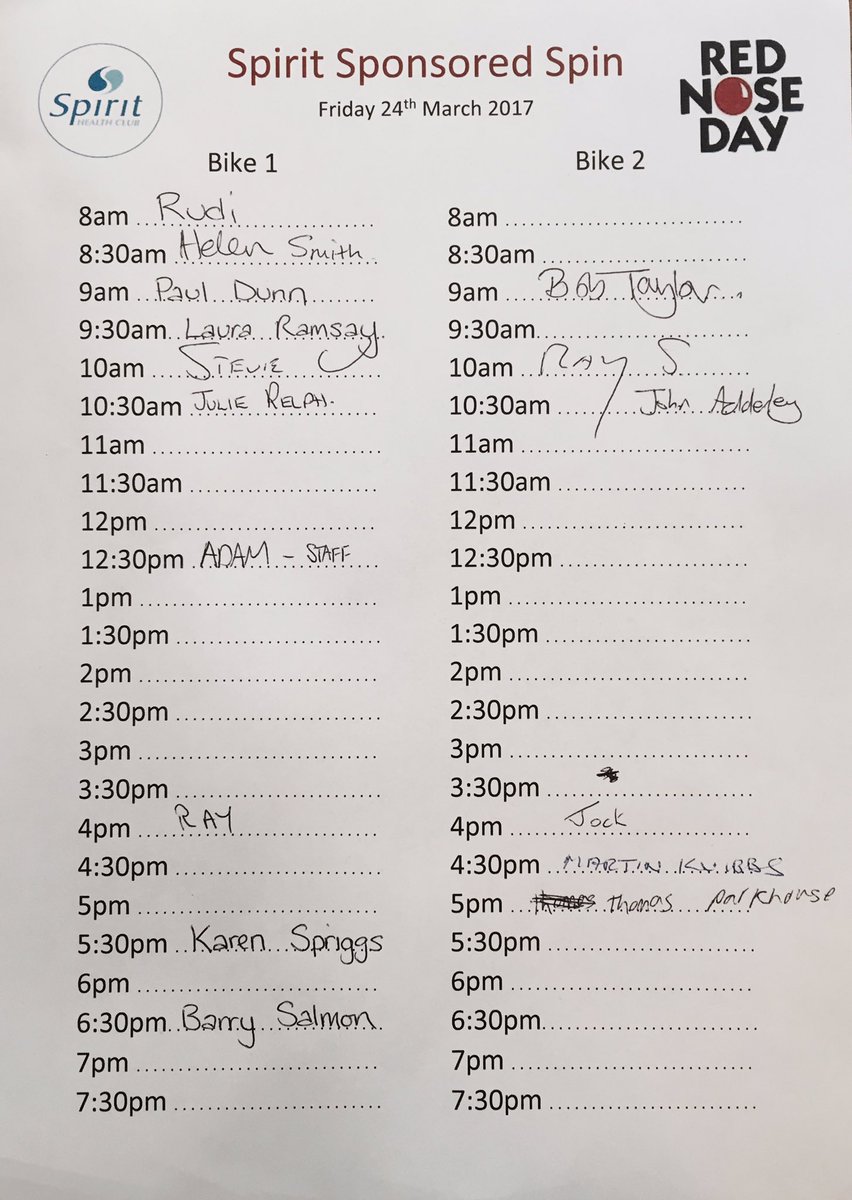 Spirit
HEALTH CLUB
Spirit Sponsored Spin
Friday 24th March 2017
RED
NOSE
DAY
Bike 1
8am Rudi
8:30am Helen Smith
9am Paul Dunn
9:30am Laura Ramsay
10am STEVIE
10:30am JULIE RELPH.
11am
11:30am
12pm
12:30pm ADAM - STAFF
1pm
1:30pm
2pm
2:30pm
3pm
3:30pm
4pm RAY
4:30pm
5pm
5:30pm Karen Spriggs
6pm
6:30pm Barry Salmon
7pm
7:30pm
Bike 2
8am
8:30am
9am Bob Taylor
9:30am
10am RAY S
10:30am John Adderley
11am
11:30am
12pm
12:30pm
1pm
1:30pm
2pm
2:30pm
3pm
3:30pm
4pm Jock
4:30pm MARTIN KNIBBS
5pm thomas thomas parkhouse
5:30pm
6pm
6:30pm
7pm
7:30pm